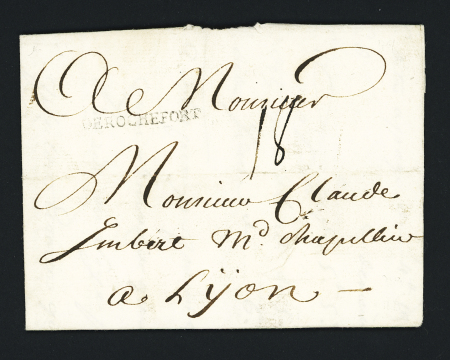 A Monsieur
DEROCHEFORT
18
Monsieur Claude
Imbert Md Chapellier
a Lÿon